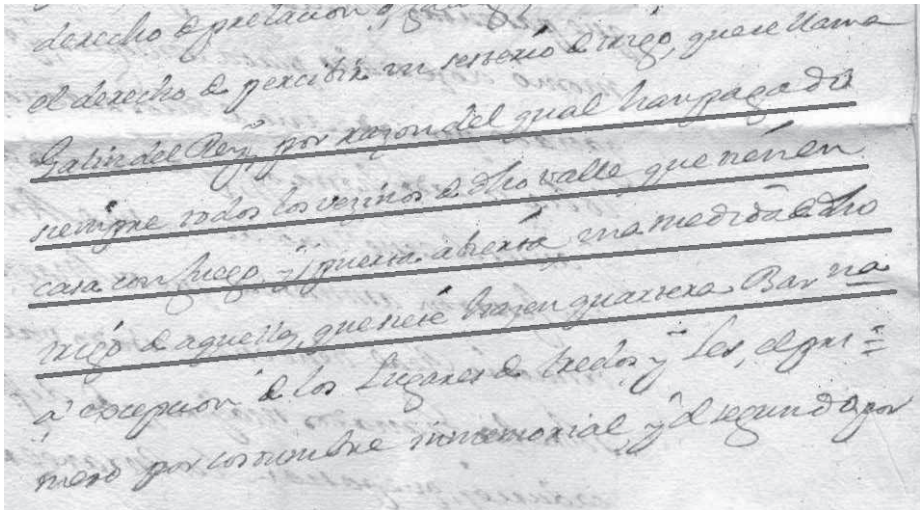 derecho de prelacion o
el derecho de percibir un sesterio de trigo, que se llama
Galin del Rey, por razon del qual han pagado
siempre todos los vezinos de dho valle que tienen
casa con fuego, y puerta abierta una medida de dho
trigo de aquella, que se dize quartera Bar na
a excepcion de los Lugares de tredos, y Les, el pri=
mero por costumbre immemorial, y el segundo por